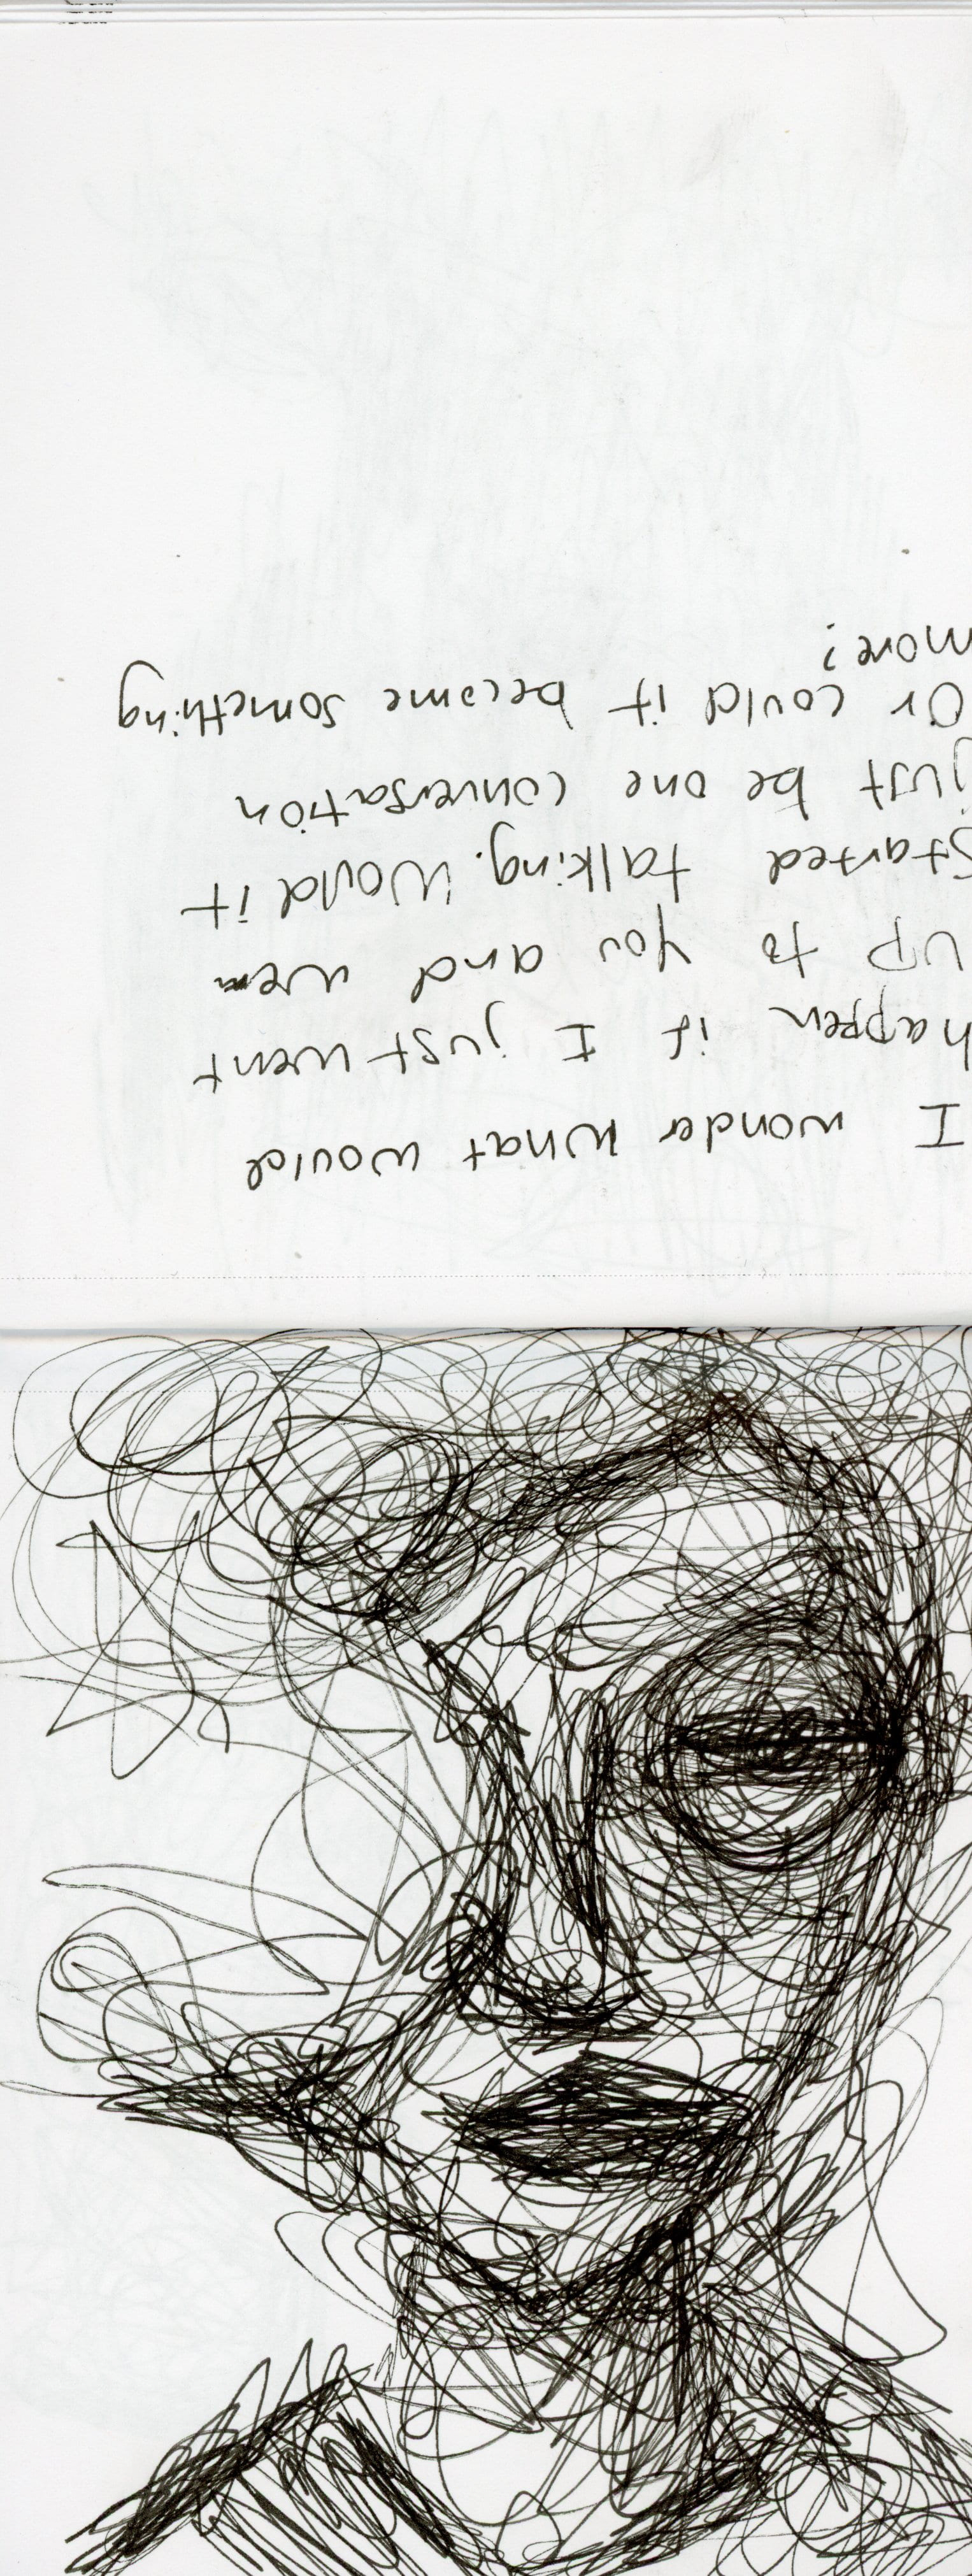 I wonder what would
happen if I just went
up to you and wem
started talking. Would it
just be one conversation
Or could it become something
more?